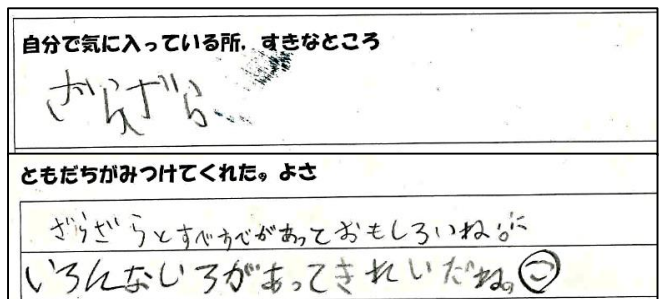 自分で気に入っている所．すきなところ
ざらざら
ともだちがみつけてくれた。よさ
ざらざらとすべすべがあっておもしろいね
いろんないろがあってきれいだね。